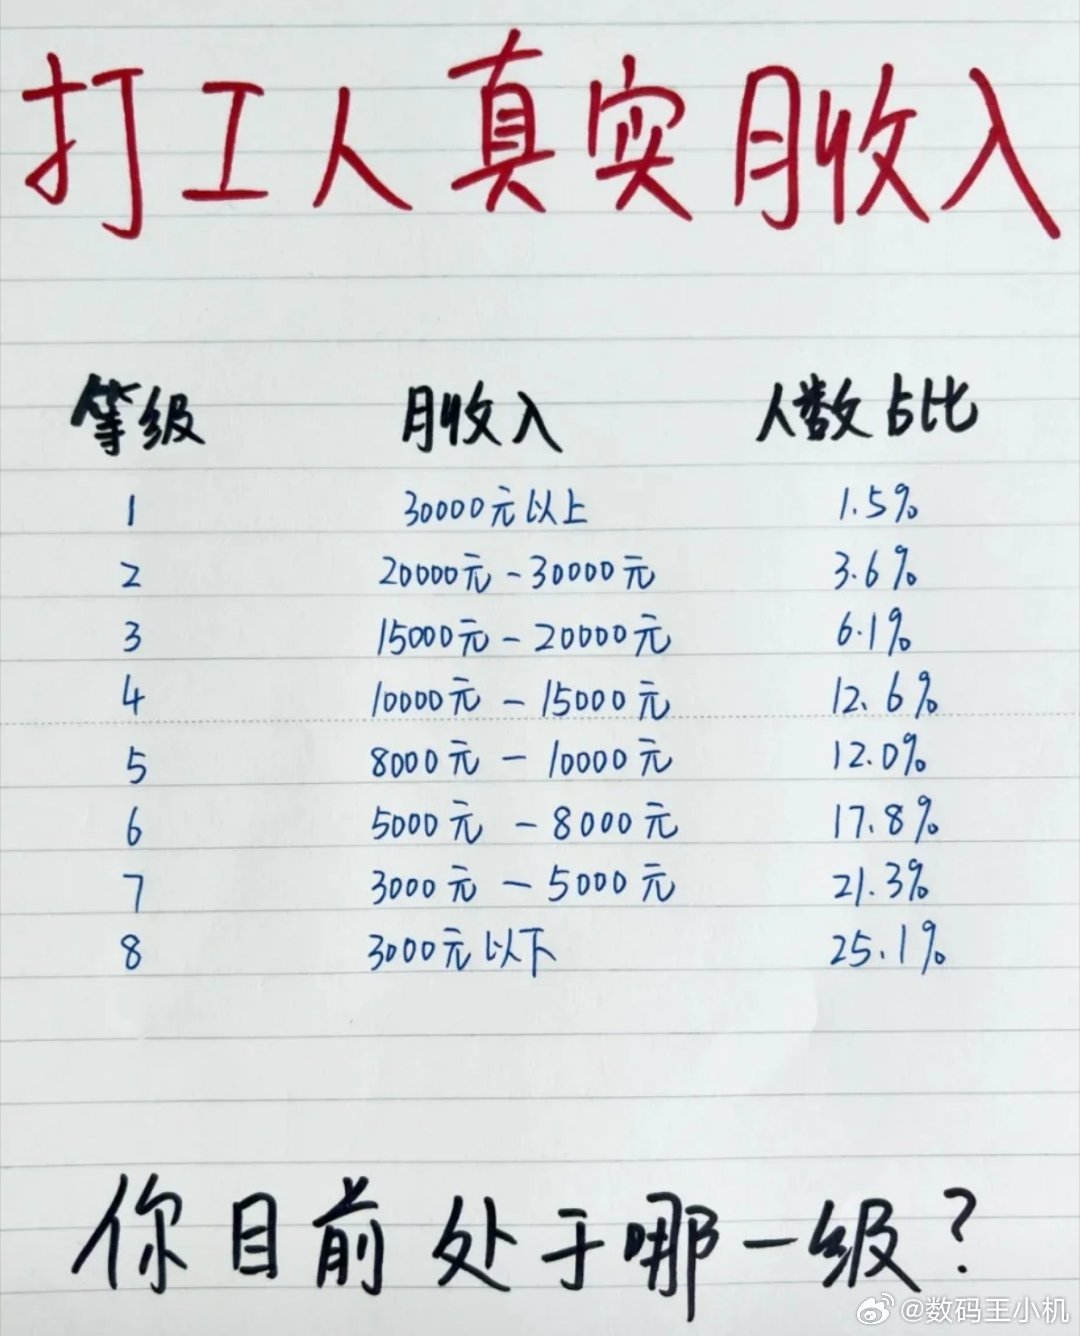 打工人真实月收入
等级 月收入 人数占比
1 30000元以上 1.5%
2 20000元-30000元 3.6%
3 15000元-20000元 6.1%
4 10000元-15000元 12.6%
5 8000元-10000元 12.0%
6 5000元-8000元 17.8%
7 3000元-5000元 21.3%
8 3000元以下 25.1%
你目前处于哪一级?
@数码王小机